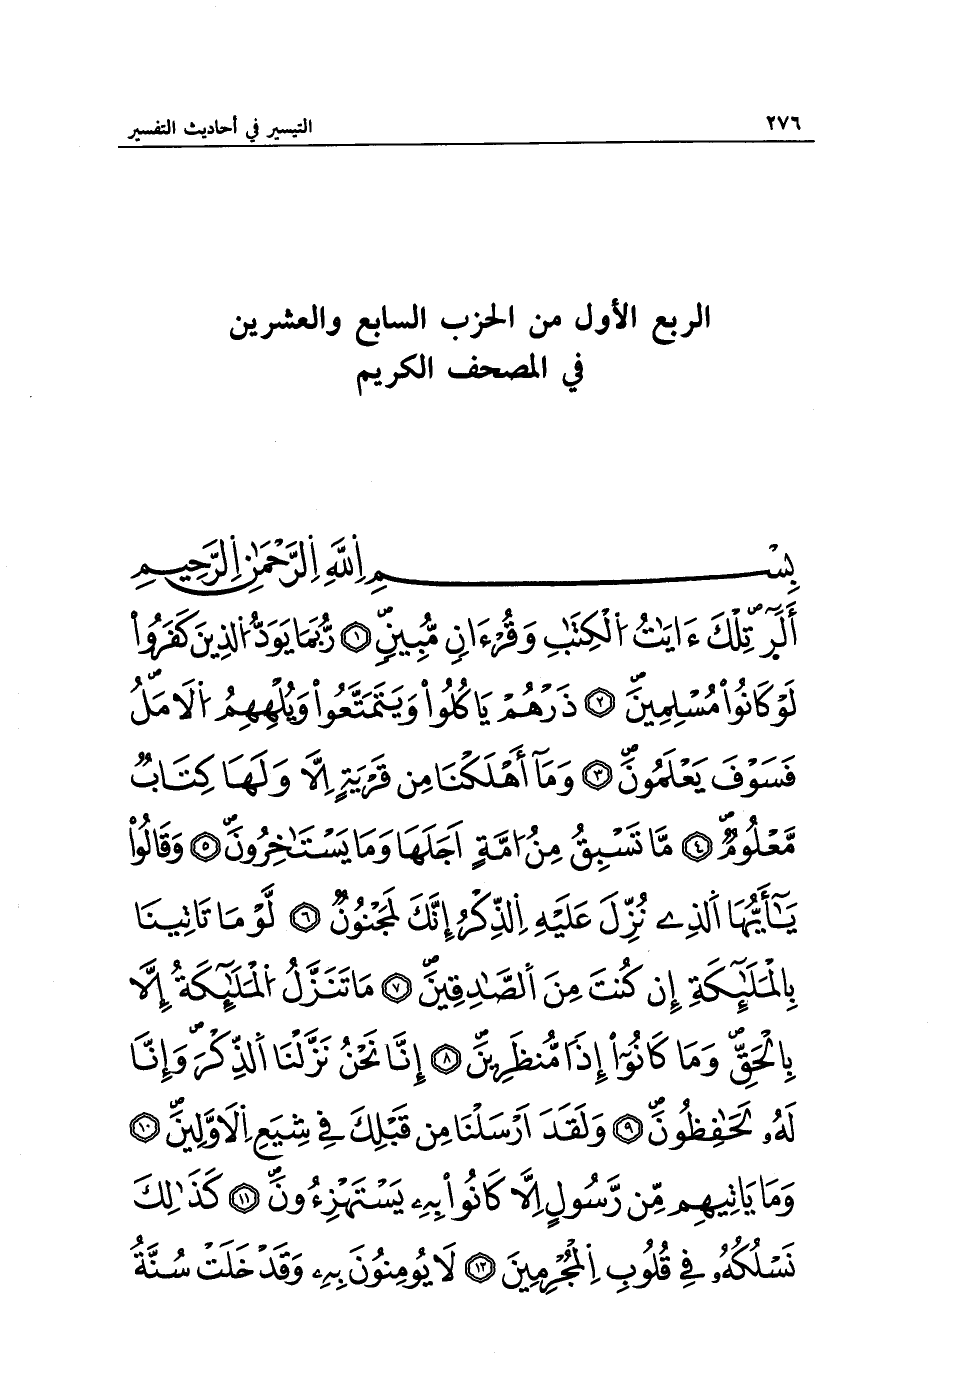 ٢٧٦ التيسير في أحاديث التفسير
الربع الأول من الحزب السابع والعشرين
في المصحف الكريم
بِسْمِ اِللَّهِ اِلرَّحْمَٰنِ اِلرَّحِيمِ
أَلَٓرۖ تِلْكَ ءَايَٰتُ اُ۬لْكِتَٰبِ وَقُرْءَانٖ مُّبِينٖۖ ١ رُّبَمَا يَوَدُّ اُ۬لذِينَ كَفَرُواْ
لَوْ كَانُواْ مُسْلِمِينَۖ ٢ ذَرْهُمْ يَاكُلُواْ وَيَتَمَتَّعُواْ وَيُلْهِهِمُ اُ۬لَامَلُۖ
فَسَوْفَ يَعْلَمُونَۖ ٣ وَمَآ أَهْلَكْنَا مِن قَرْيَةٍ اِلَّا وَلَهَا كِتَابٞ
مَّعْلُومٞۖ ٤ مَّا تَسْبِقُ مِنُ ا۟مَّةٍ اَجَلَهَا وَمَا يَسْتَٰخِرُونَۖ ٥ وَقَالُواْ
يَٰٓأَيُّهَا اَ۬لذِے نُزِّلَ عَلَيْهِ اِ۬لذِّكْرُ إِنَّكَ لَمَجْنُونٞۖ ٦ لَّوْ مَا تَاتِينَا
بِالْمَلَٰٓئِكَةِ إِن كُنتَ مِنَ اَ۬لصَّٰدِقِينَۖ ٧ مَا تَنَزَّلُ اُ۬لْمَلَٰٓئِكَةُ إِلَّا
بِالْحَقِّۖ وَمَا كَانُوٓاْ إِذاٗ مُّنظَرِينَۖ ٨ إِنَّا نَحْنُ نَزَّلْنَا اَ۬لذِّكْرَۖ وَإِنَّا
لَهُۥ لَحَٰفِظُونَۖ ٩ وَلَقَدَ اَرْسَلْنَا مِن قَبْلِكَ فِے شِيَعِ اِ۬لَاوَّلِينَۖ ١٠
وَمَا يَاتِيهِم مِّن رَّسُولٍ اِلَّا كَانُواْ بِهِۦ يَسْتَهْزِءُونَۖ ١١ كَذَٰلِكَ
نَسْلُكُهُۥ فِے قُلُوبِ اِ۬لْمُجْرِمِينَ ١٢ لَا يُومِنُونَ بِهِۦ وَقَدْ خَلَتْ سُنَّةُ